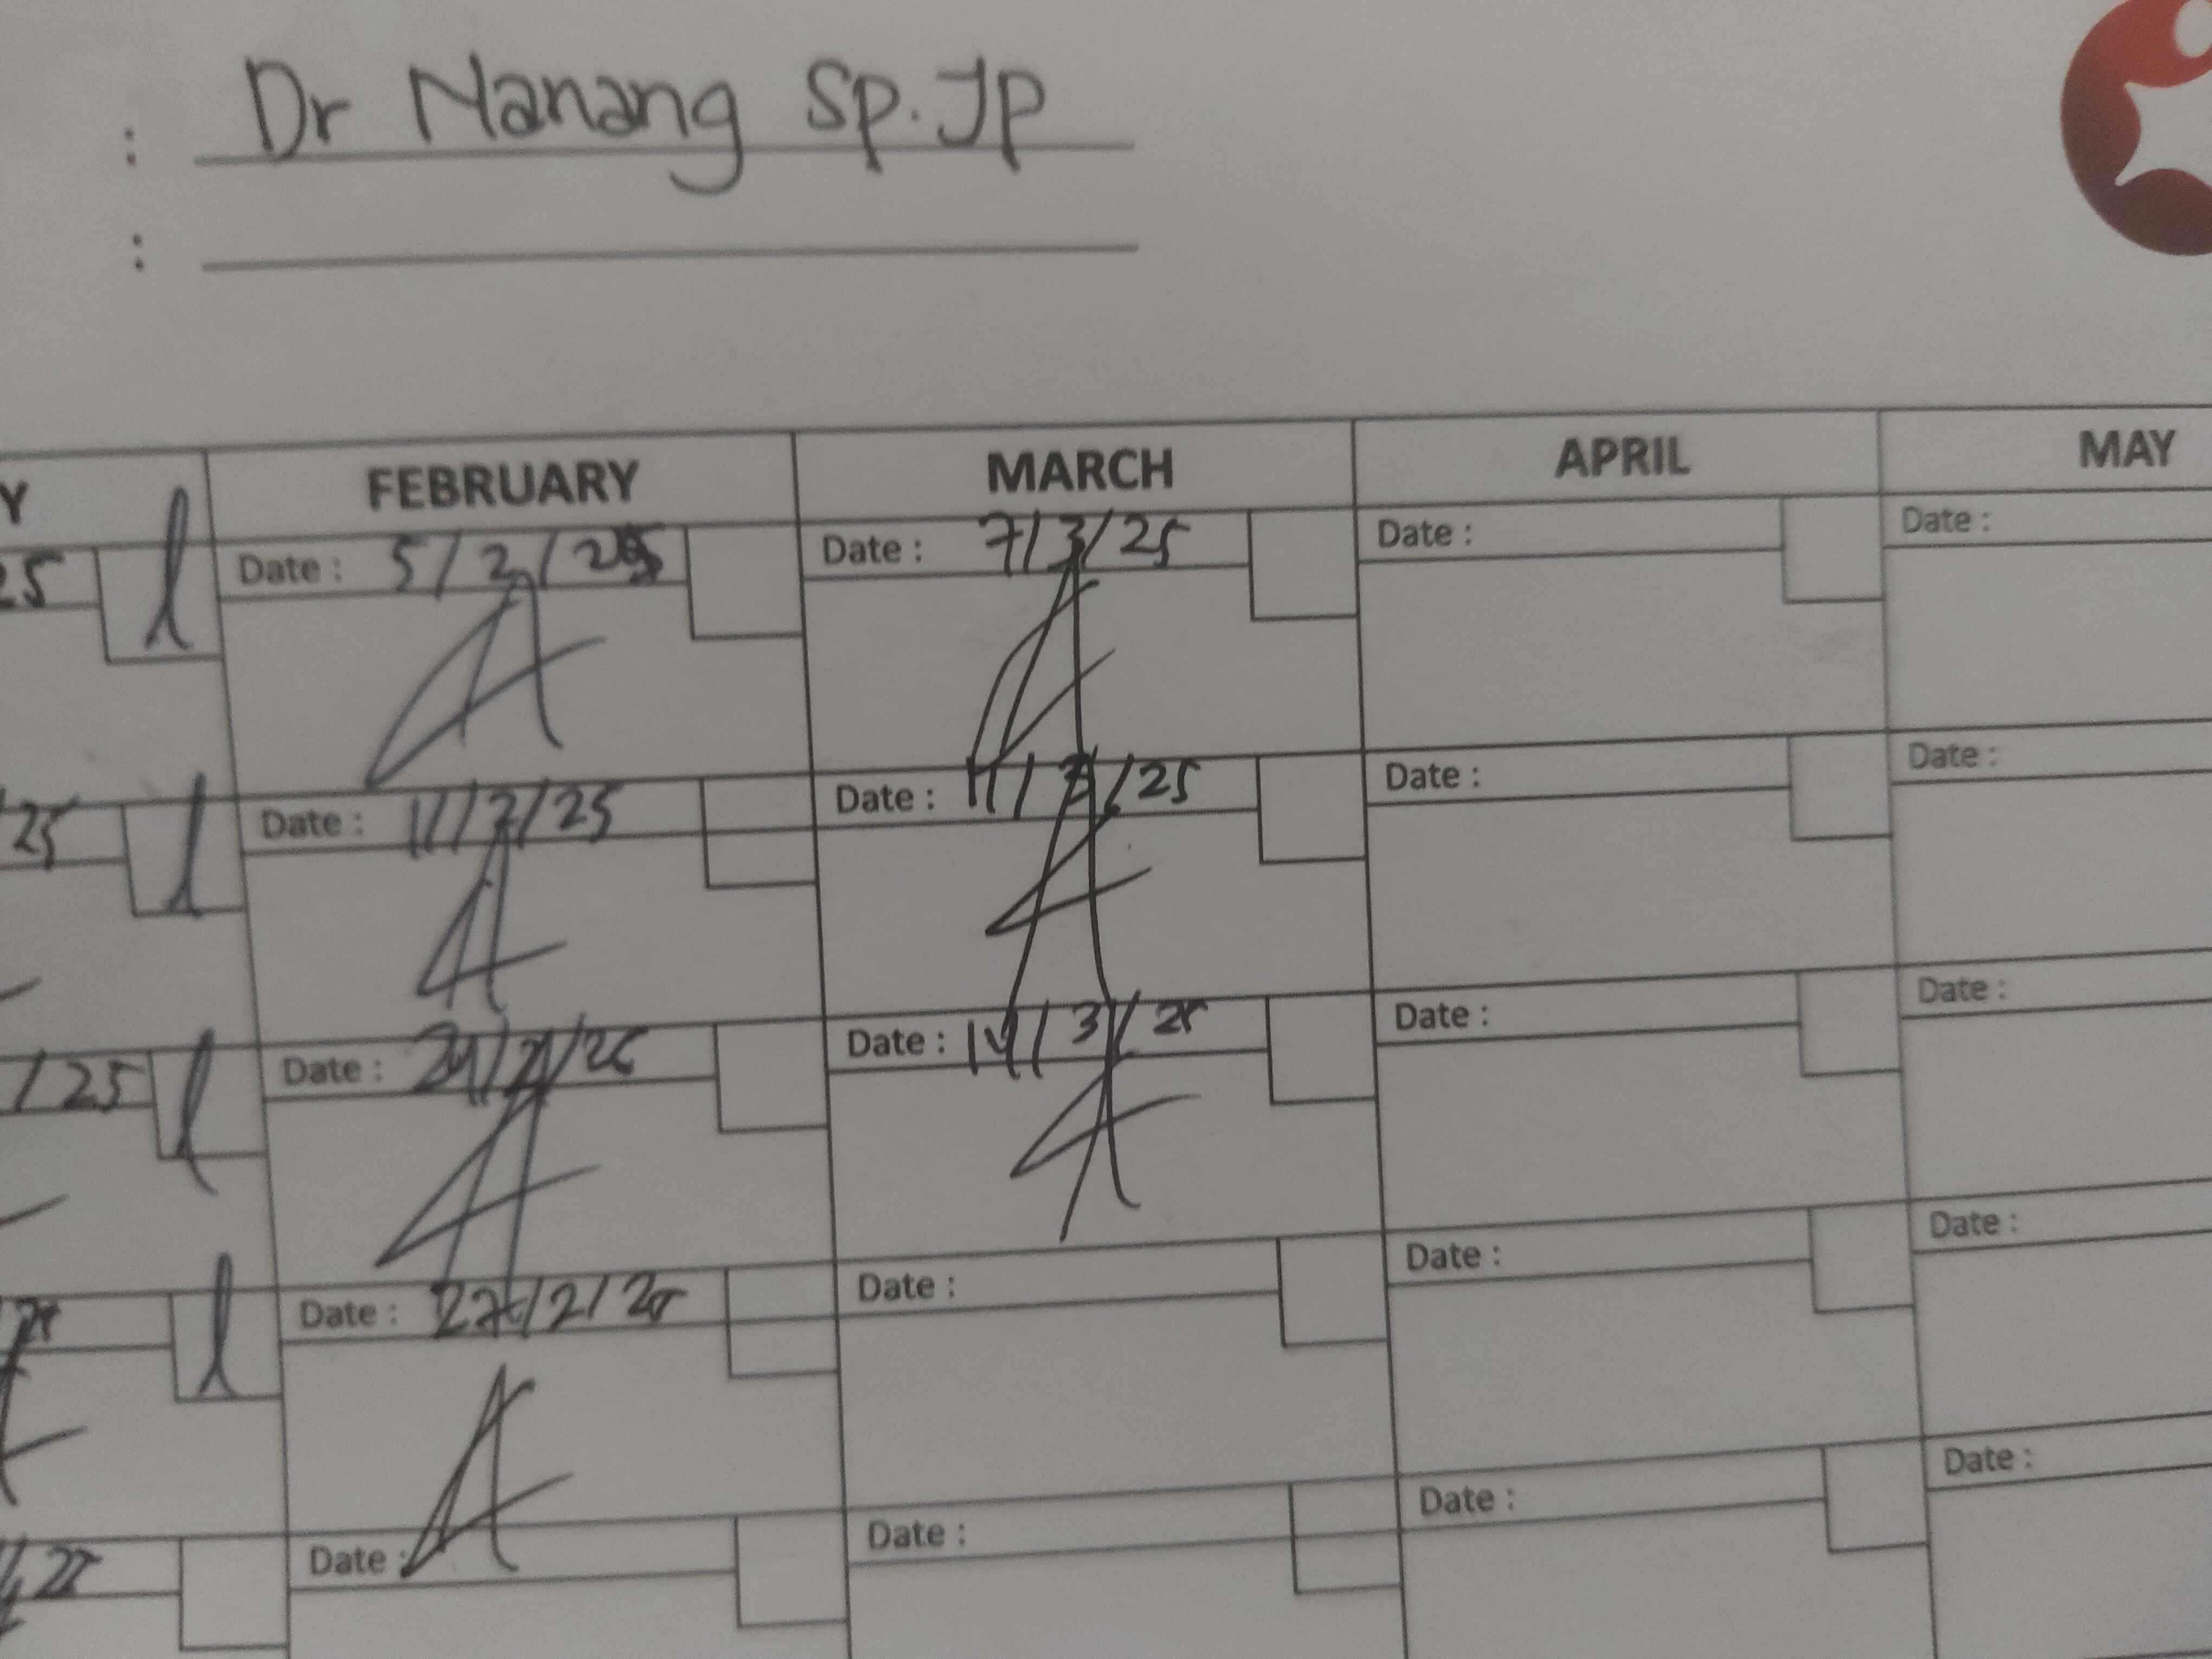 : Dr Nanang Sp.JP
:
Y FEBRUARY MARCH APRIL MAY
25 Date : 5/2/25 Date : 7/3/25 Date : Date :
/25 Date : 11/2/25 Date : 11/3/25 Date : Date :
/25 Date : Date : 14/3/25 Date : Date :
Date : 27/2/25 Date : Date : Date :
Date : Date : Date : Date :